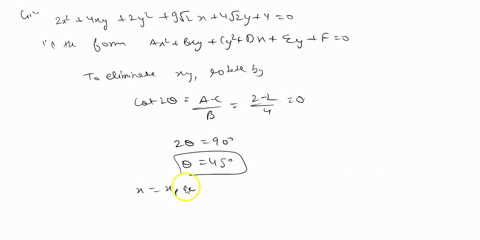 Give 2x² + 4xy + 2y² + 9√2 x + 4√2 y + 4 = 0
in the form Ax² + Bxy + Cy² + Dx + Ey + F = 0
To eliminate xy, rotate by
Cot 2θ = A-C/B = 2-2/4 = 0
2θ = 90°
θ = 45°
x = x,